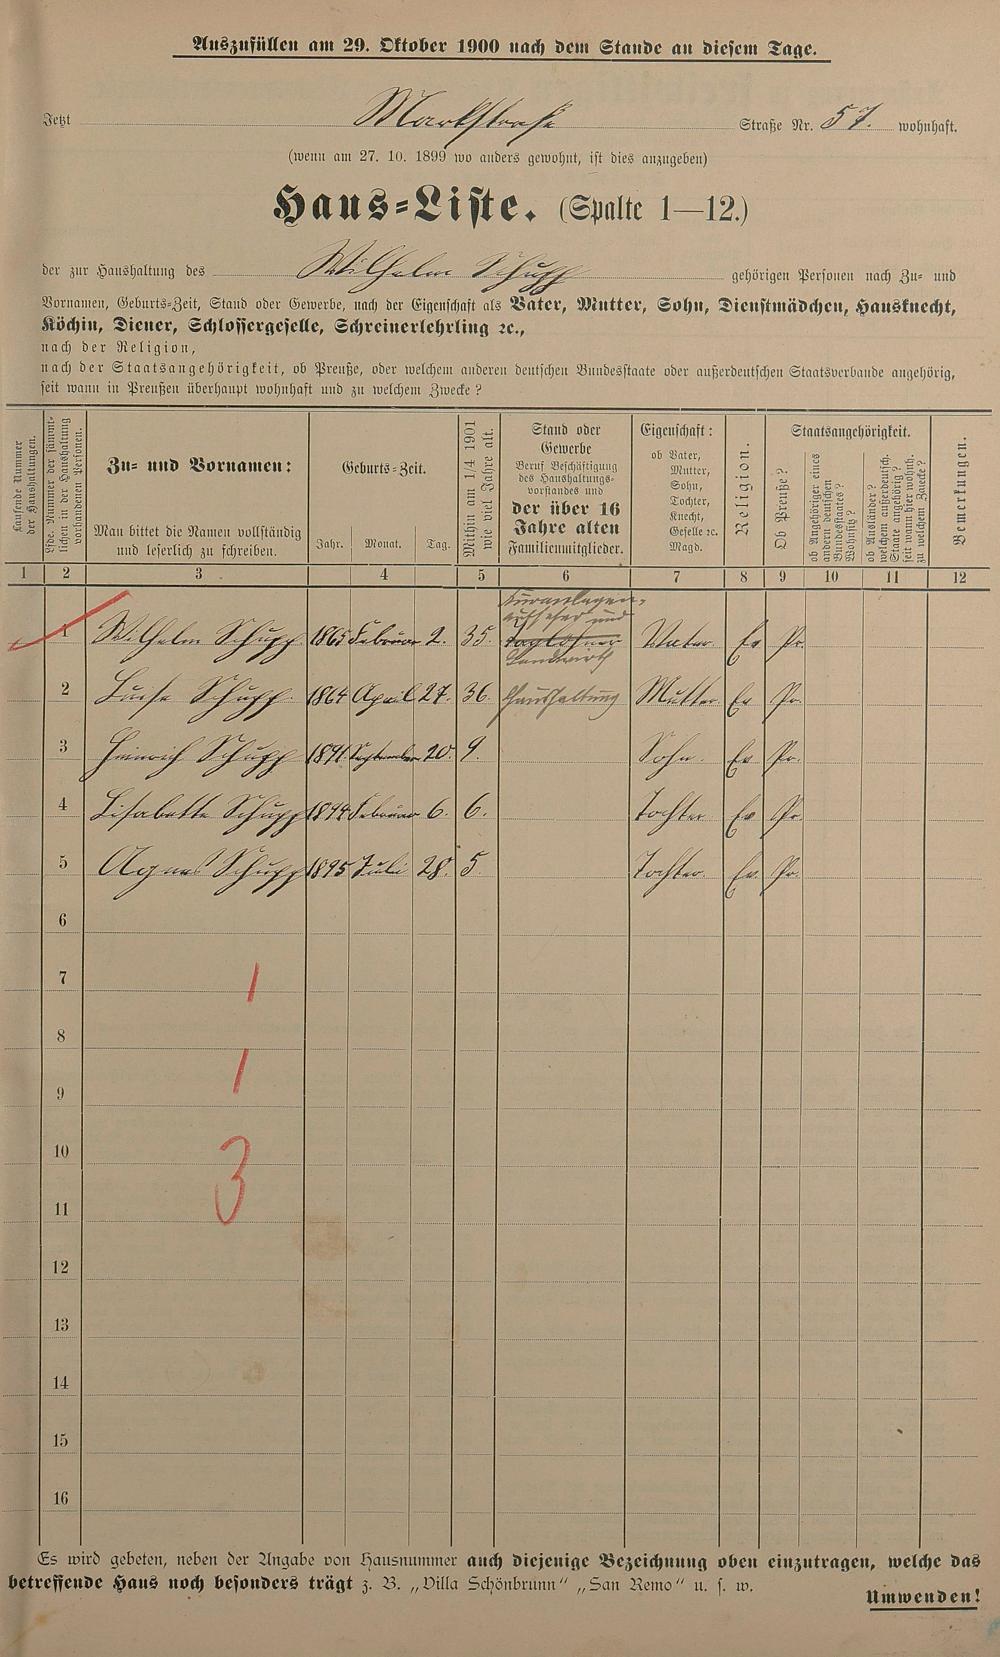 Auszufüllen am 29. Oktober 1900 nach dem Stande an diesem Tage.
Jetzt Markstraße Straße Nr. 57. wohnhaft.
(wenn am 27. 10. 1899 wo anders gewohnt, ist dies anzugeben)
Haus-Liste. (Spalte 1—12.)
der zur Haushaltung des Wilhelm Schupp gehörigen Personen nach Zu- und
Vornamen, Geburts-Zeit, Stand oder Gewerbe, nach der Eigenschaft als Vater, Mutter, Sohn, Dienstmädchen, Hausknecht,
Köchin, Diener, Schlossergeselle, Schreinerlehrling ꝛc.,
nach der Religion,
nach der Staatsangehörigkeit, ob Preuße, oder welchem anderen deutschen Bundesstaate oder außerdeutschen Staatsverbande angehörig,
seit wann in Preußen überhaupt wohnhaft und zu welchem Zwecke?
Laufende Nummer
der Haushaltungen.
Lfde. Nummer der sämmt-
lichen in der Haushaltung
vorhandenen Personen.
Zu- und Vornamen:
Man bittet die Namen vollständig
und leserlich zu schreiben.
Geburts-Zeit.
Jahr. Monat. Tag.
Mithin am 1/4 1901
wie viel Jahre alt.
Stand oder
Gewerbe
Beruf Beschäftigung
des Haushaltungs-
vorstandes und
der über 16
Jahre alten
Familienmitglieder.
Eigenschaft:
ob Vater,
Mutter,
Sohn,
Tochter,
Knecht,
Geselle ꝛc.
Magd.
Religion.
Staatsangehörigkeit.
Ob Preuße?
ob Angehöriger eines
andern deutschen
Bundesstaates?
Wohnsitz?
ob Ausländer?
welchem außerdeutsch.
Staate angehörig?
seit wann hier wohnh.
zu welchem Zwecke?
Bemerkungen.
1 2 3 4 5 6 7 8 9 10 11 12
Kuranlagen-
aufseher und
1 Wilhelm Schupp 1865 Februar 2. 35. Taglöhner Vater. Ev Pr.
Landwirth
2 Luise Schupp. 1864 April 27. 36. Haushaltung Mutter. Ev Pr.
3 Heinrich Schupp 1891. September 20. 9. Sohn. Ev Pr.
4 Lisabette Schupp 1894 Februar 6. 6. Tochter Ev Pr.
5 Agnes Schupp 1895 Juli 28. 5. Tochter. Ev. Pr.
6
7 1
8
1
9
10 3
11
12
13
14
15
16
Es wird gebeten, neben der Angabe von Hausnummer auch diejenige Bezeichnung oben einzutragen, welche das
betreffende Haus noch besonders trägt z. B. „Villa Schönbrunn“ „San Remo“ u. s. w.
Umwenden!